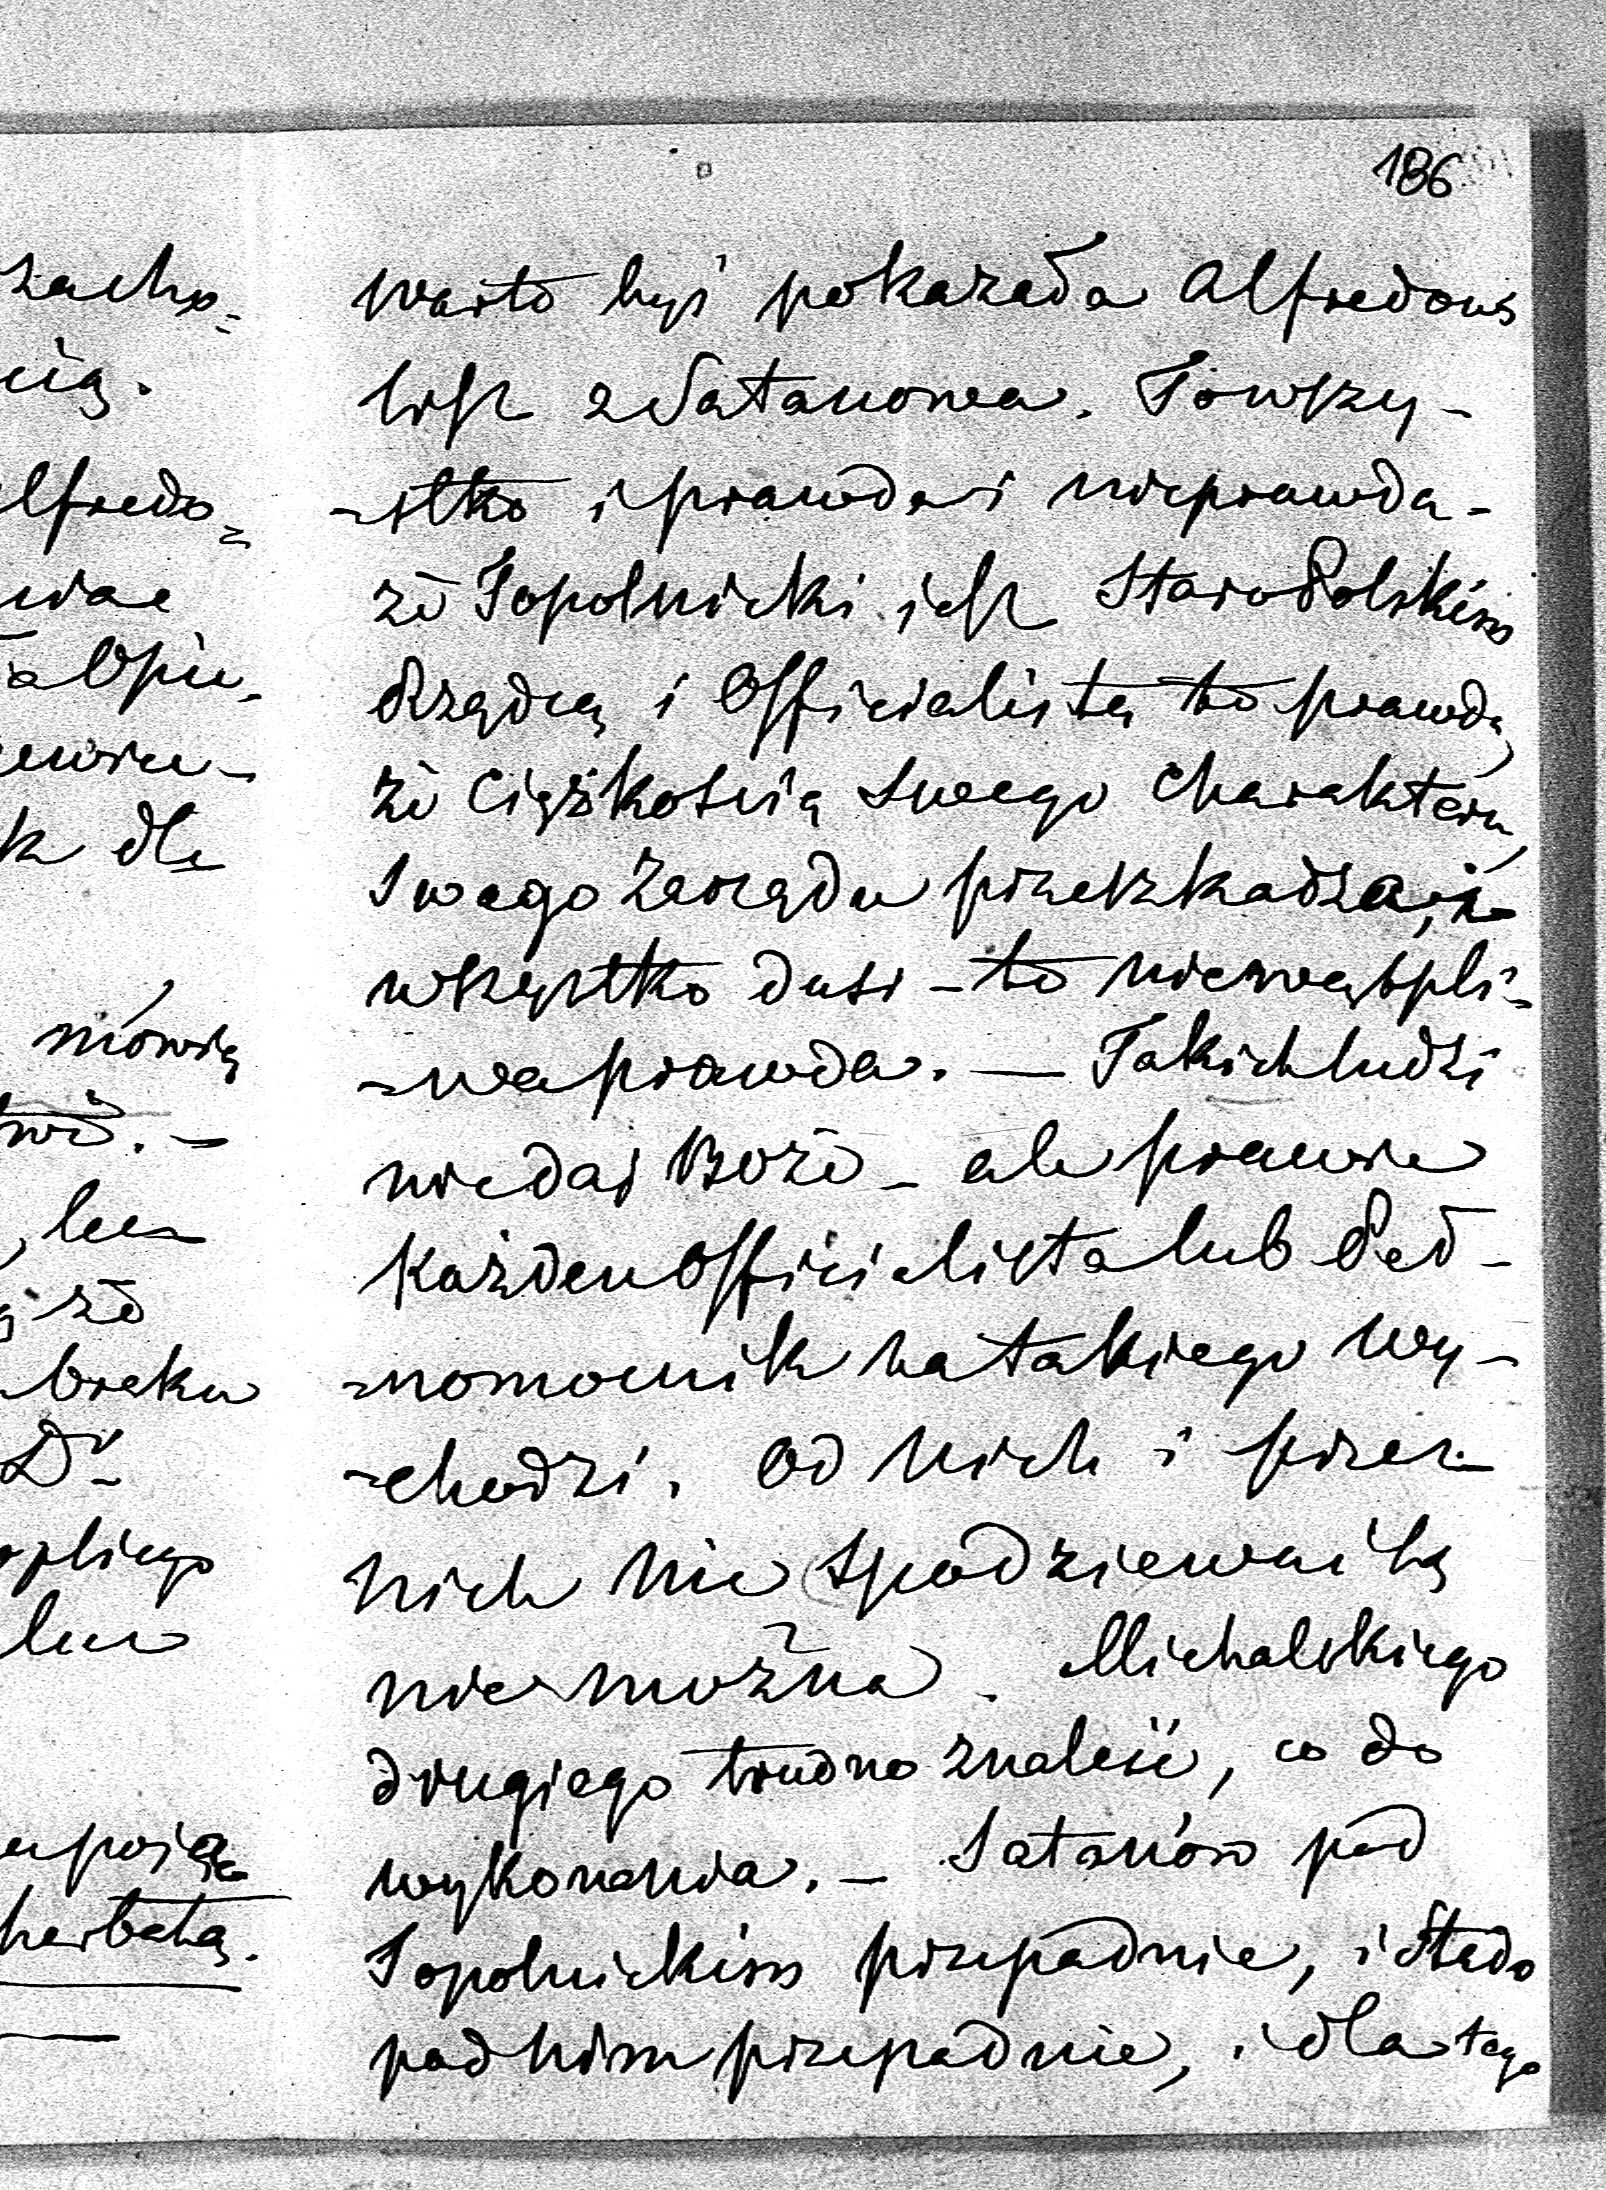 186
warto byś pokazała Alfredows
list z Satanowa. To wszy-
-stko i prawda i nieprawda-
że Topolnicki jest StaroPolskim
Rządcą i Officialistą to prawda,
że Ciężkością swego Charakteru,
swego Zarządu przeszkadza, i
wszystko dusi - to niewątpli-
-wa prawda. — Takich ludzi
nie daj Boże - ale prawie
każden Officialista lub Peł-
-nomocnik na takiego wy-
-chodzi. Od nich i przez
nich nic spodziewać się
nie można. Michalskiego
drugiego trudno znaleść, co do
wykonania. - Satanów pod
Topolnickim przepadnie, i Stado
pod nim przepadnie, i dla tego
zacho-
cią.
Alfredo-
k dla
mówią
,
że
Dr
herbatą.